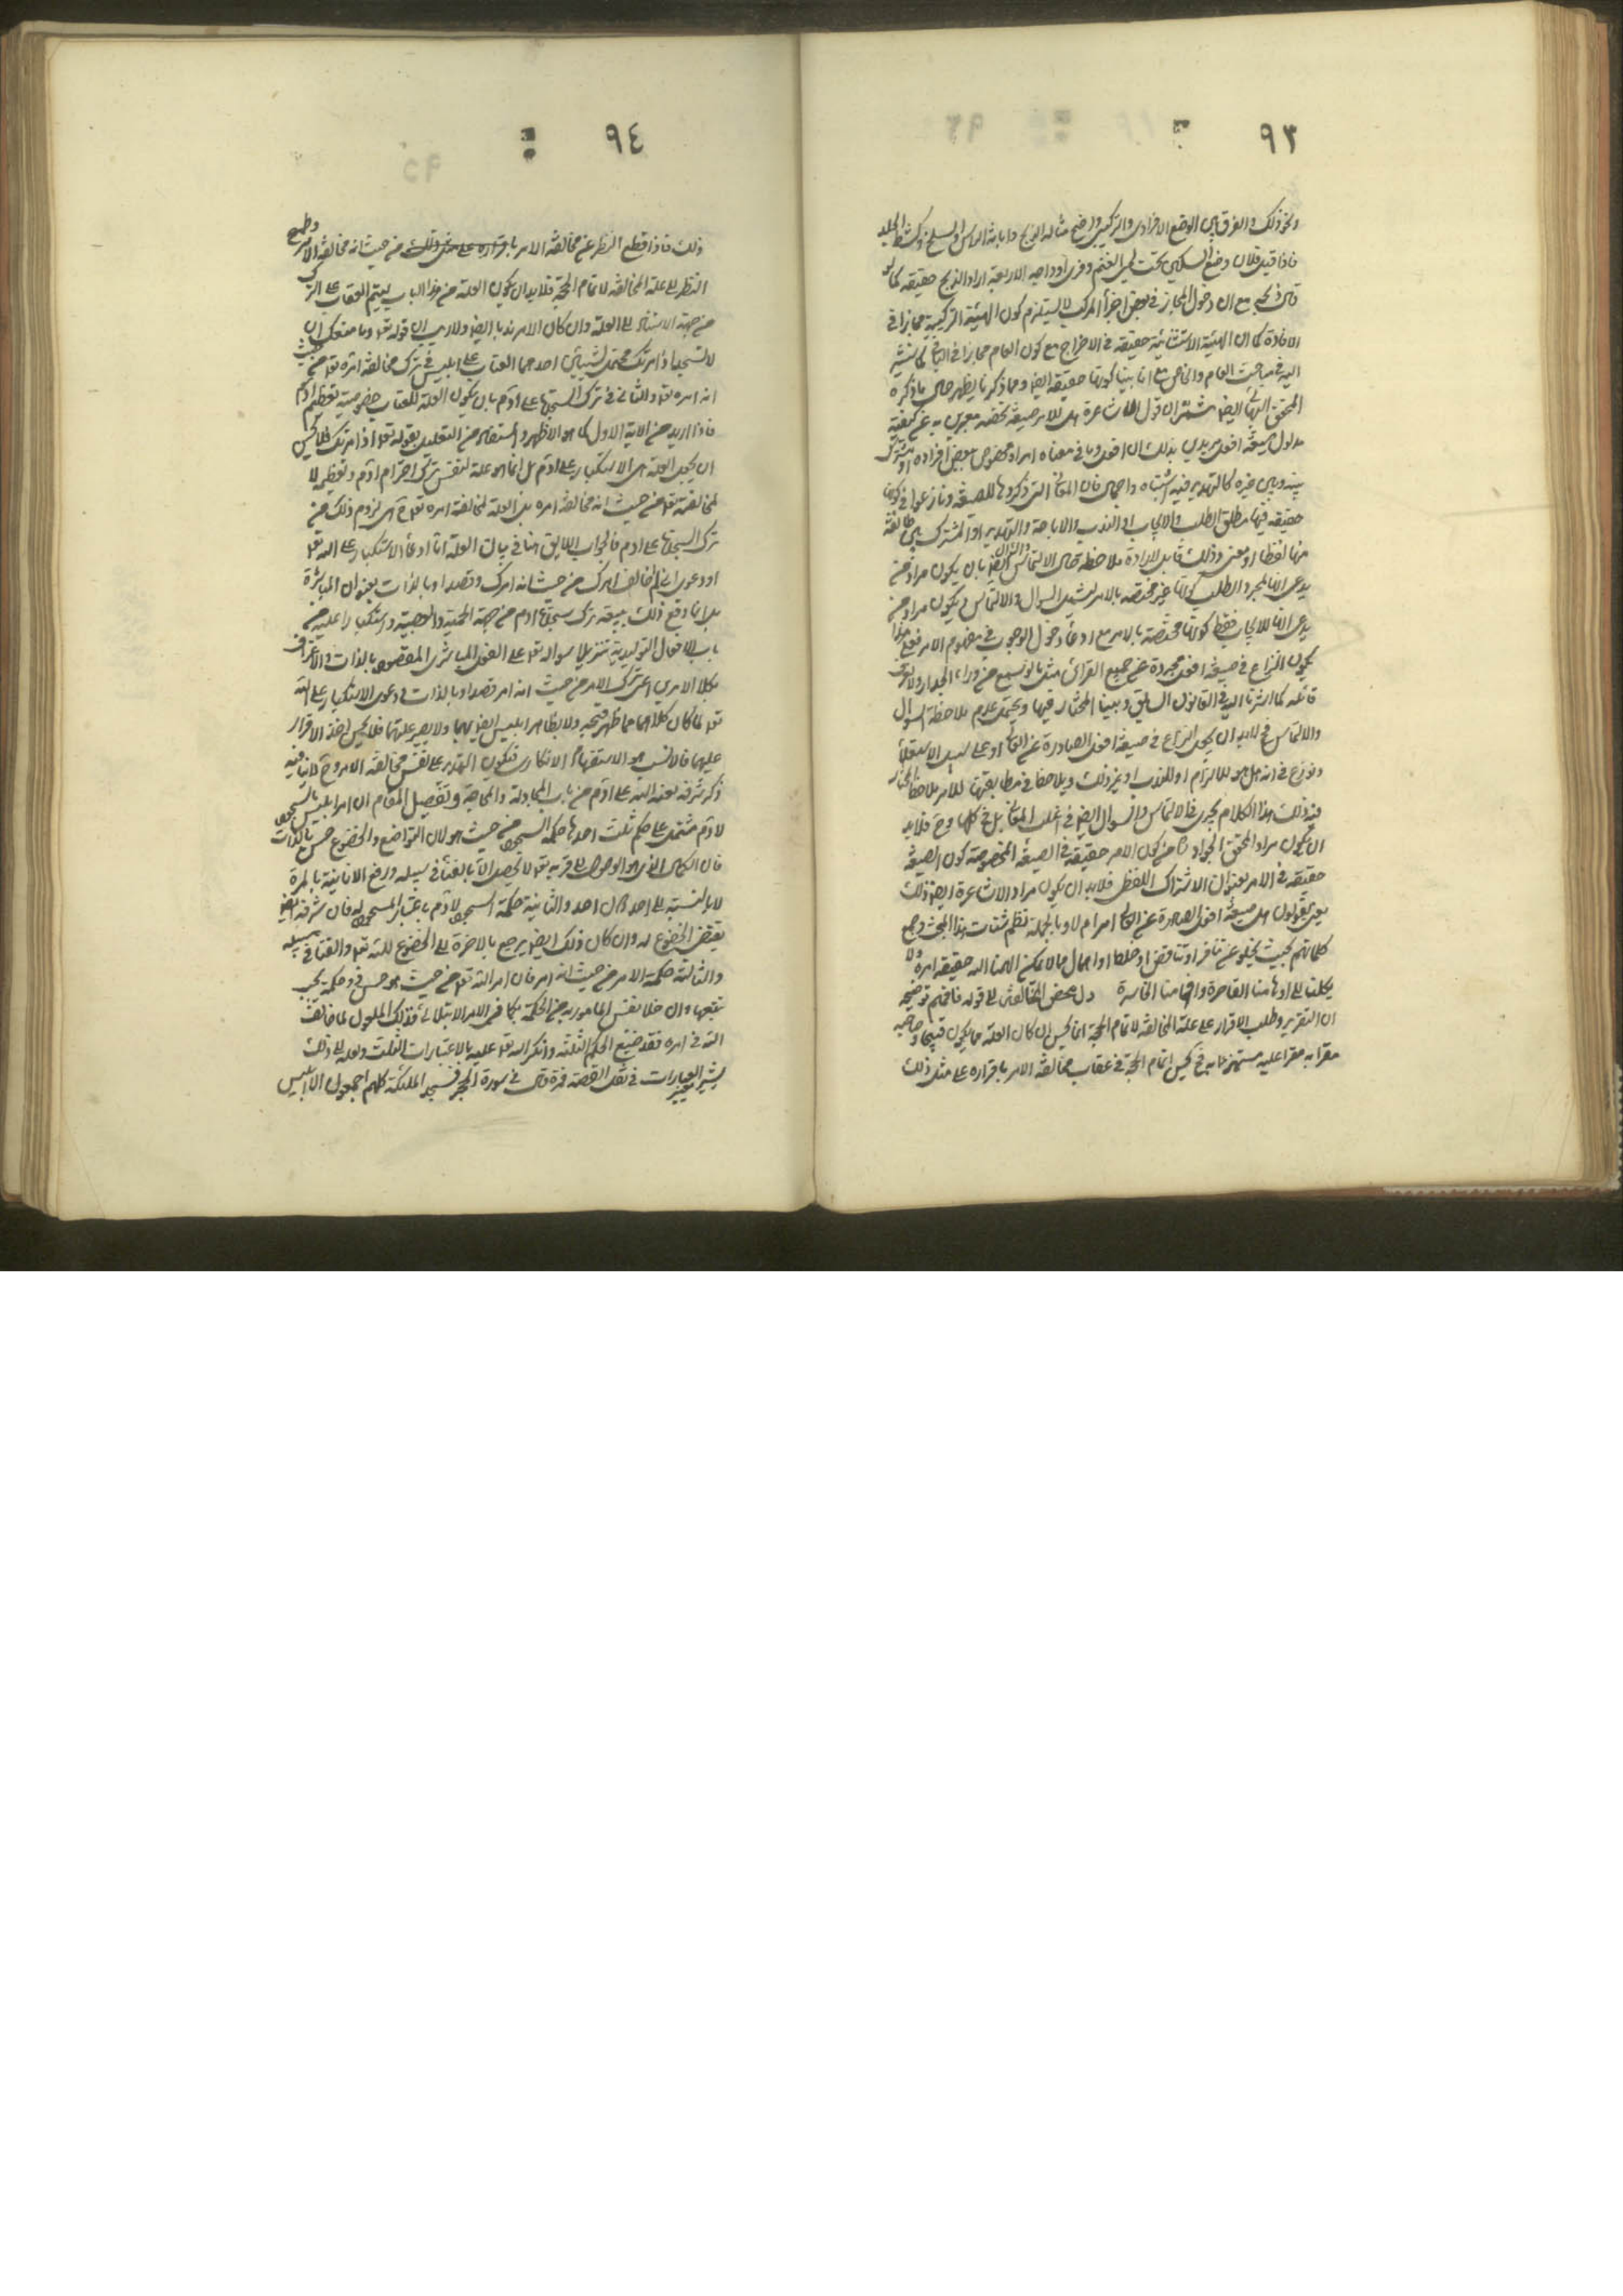 ٩٣
ونحو ذلك والفرق بين الوضع الافرادى والتركيبى واضح مثاله الذبح وابانة الراس والسلخ وكشط الجلد
فاذا قيل فلان وضع السكين تحت لحى الغنم وفرى اوداجه الاربعة اراد الذبح حقيقة كما لو
قال ذبح مع ان دخول المجاز فى بعض اجزأ المركب لا يستلزم كون الهيئة التركيبية مجازا فى
الافادة كما ان الهيئة الاستثنائية حقيقة فى الاخراج مع كون العام مجازا فى الباقى كما سنشير
اليه فى مباحث العام والخاص مع انا بينا كونها حقيقة ايضا ومما ذكرنا يظهر حال ما ذكره
المحقق البهائى ايضا ثم ان قول الاشاعرة هل للامر صيغة تخصه معبرين به عن كيفية
مدلول صيغة افعل يريدون بذلك ان افعل وما فى معناه امرا ومخصوص ببعض افراده او مشترك
بينه وبين غيره كالتهديد فيه اشتباه واجمال فان المعانى التى ذكروها للصيغة ونازعوا فى كونها
حقيقة فيها مطلق الطلب والايجاب او الندب والاباحة والتهديد او المشترك بين طائفة
منها لفظا او معنى وذلك قابل لارادة ملاحظة حال الالتماس والسؤال ايضا بان يكون مراد من
يدعى انها لمجرد الطلب كونها غير مختصة بالامر ليشمل السؤال والالتماس ويكون مراد من
يدعى انها للايجاب فقط كونها مختصة بالامر مع ادعأ دخول الوجوب فى مفهوم الامر فعلى هذا
يكون النزاع فى صيغة افعل مجردة عن جميع القرائن مثل ما لو سمع من وراء الجدار ولا يعرف
قائله كما اشرنا اليه فى القانون السابق وبينا المختار فيها ويحتمل عدم ملاحظة السؤال
والالتماس فلابد ان يجعل النزاع فى صيغة افعل الصادرة عن العالى او على سبيل الاستعلأ
ونوزع فى انه هل هو للالزام او للندب او غير ذلك ويلاحظ فى مطابقتها للامر ملاحظة المختار
فيه ذلك هذا الكلام يجرى فى الالتماس والسوال ايضا فى اغلب المعانى بل فى كلها وح فلابد
ان يكون مراد المحقق الجواد ره من كون الامر حقيقة فى الصيغة المخصوصة كون الصيغة
حقيقة فى الامر بعنوان الاشتراك اللفظى فلابد ان يكون مراد الاشاعرة ايضا ذلك
يعنى يقولون هل صيغة افعل الصادرة عن العالى امر ام لا وبالجملة نظم شتات هذا المبحث وجمع
كلماتهم بحيث يخلو عن تنافر او تناقض او خلط او اهمال مما لا يمكن الهمنا الله حقيقة امره ولا
يكلنا الى اوهامنا القاصرة وافهامنا الخاسرة دل بمحض المخالفة الى قوله فافهم توضيحه
ان التقرير وطلب الاقرار على علة المخالفة لاتمام الحجة انما يحسن ان كان العلة مما يكون قبيحا وصاحبه
مقرا به مقرا عليه مستهزءا به فى لحسن اتمام الحجة فى عقاب مخالفة الامر باقراره على مثل ذلك
٩٤
ذلك فاذا قطع النظر عن مخالفة الامر باقراره على مثل ذلك من حيث انه مخالفة الامر وطمح
النظر الى علة المخالفة لاتمام الحجة فلابد ان يكون العلة من هذا الباب ليتم العقاب على الترك
من جهة الاستناد الى العلة وان كان الامر ندبا ايضا ولا ريب ان قوله تعا وما منعك ان
لا تسجد اذ امرتك محتمل لشيئين احدهما العتاب على ابليس فى ترك مخالفة امره تعا من حيث
انه امره تعا والثانى فى ترك السجدة على آدم بان يكون العلة للعتاب خصوصية تعظيم آدم
فاذا اريد من الاية الاول كما هو الاظهر والمستفاد من التعليل بقوله تعا اذ امرتك فلا يحسن
ان يجعل العلة هى الاستكبار على آدم بل انما هو علة لنفس ترك احترام آدم وتعظيمه لا
لمخالفته تعا من حيث انه مخالفة امره بل العلة لمخالفة امره تعا ح هى لزوم ذلك من
ترك السجدة على آدم فالجواب اللايق هنا فى بيان العلة اما ادعأ الاستكبار على الله تعا
او دعوى انى لم اخالف امرك من حيث انه امرك وقصدا وبالذات بعنوان المباشرة
بل انما وقع ذلك بتبعية ترك سجدة آدم من جهة الحمية والعصبية واستكبارا عليه من
باب الافعال التوليدية تنزيلا سواله تعا على الفعل المباشرى المقصود بالذات والاعتراف
بكلا الامرين اعنى ترك الامر من حيث انه امر قصدا وبالذات ودعوى الاستكبار على الله
تعا لما كان كلاهما مما ظهر قبحه ولا يظاهر ابليس ايضا بهما ولا يصير علتهما فلا يحسن اخذ الاقرار
عليهما فالانسب هو الاستفهام الانكارى فيكون التهديد على نفس مخالفة الامر وح لا ينافيه
ذكر شرفه لعنه الله على آدم من باب المجادلة والمحاجة وتفصيل المقام ان امر ابليس بالسجود
لآدم مشتمل على حكم ثلث احدها حكمة السجود من حيث هو لان التواضع والخضوع حسن بالذات
فان الكمال الذى هو الوصول الى قربه تعا لا يحصل الا بالفنأ فى سبيله ورفع الانانية بالمرة
لا بالنسبة الى احد دون احد والثانية حكمة السجود لآدم باعتبار المسجود له فان شرفه ايضا
يقتضى الخضوع له وان كان ذلك ايضا يرجع بالاخرة الى الخضوع لله تعا والفنأ فى سبيله
والثالثة حكمة الامر من حيث انه امر فان امر الله تعا من حيث هو حسن وحكمة يجب
تتبعها وان خلا نفس المامور به من الحكمة كما فى الامر الابتلائى فذلك الملعول لما خالف
الله فى امره فقد ضيع الحكم الثلثة وانكر الله تعا عليه بالاعتبارات الثلث ولعله الى ذلك
يشير تغيير العبارات فى نقل القصة فمرة قال فى سورة الحجر فسجد الملئكة كلهم اجمعون الا ابليس